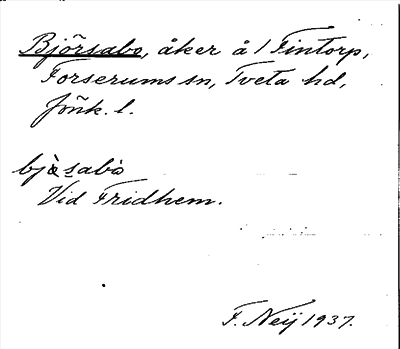 Björsabo, åker å 1 Fintorp,
Forserums sn, Tveta hd,
Jönk. l.
bjö̀sabò
Vid Fridhem.
F. Neij 1937.